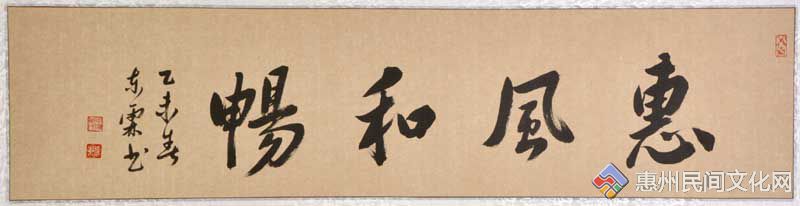 惠風和暢
乙未春
东霖书
惠州民间文化网